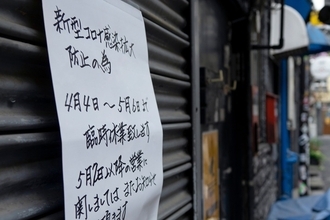 新型コロナ感染拡大
防止の為
4月4日〜5月6日まで
臨時休業致します
5月7日以降の営業に
関しましては また